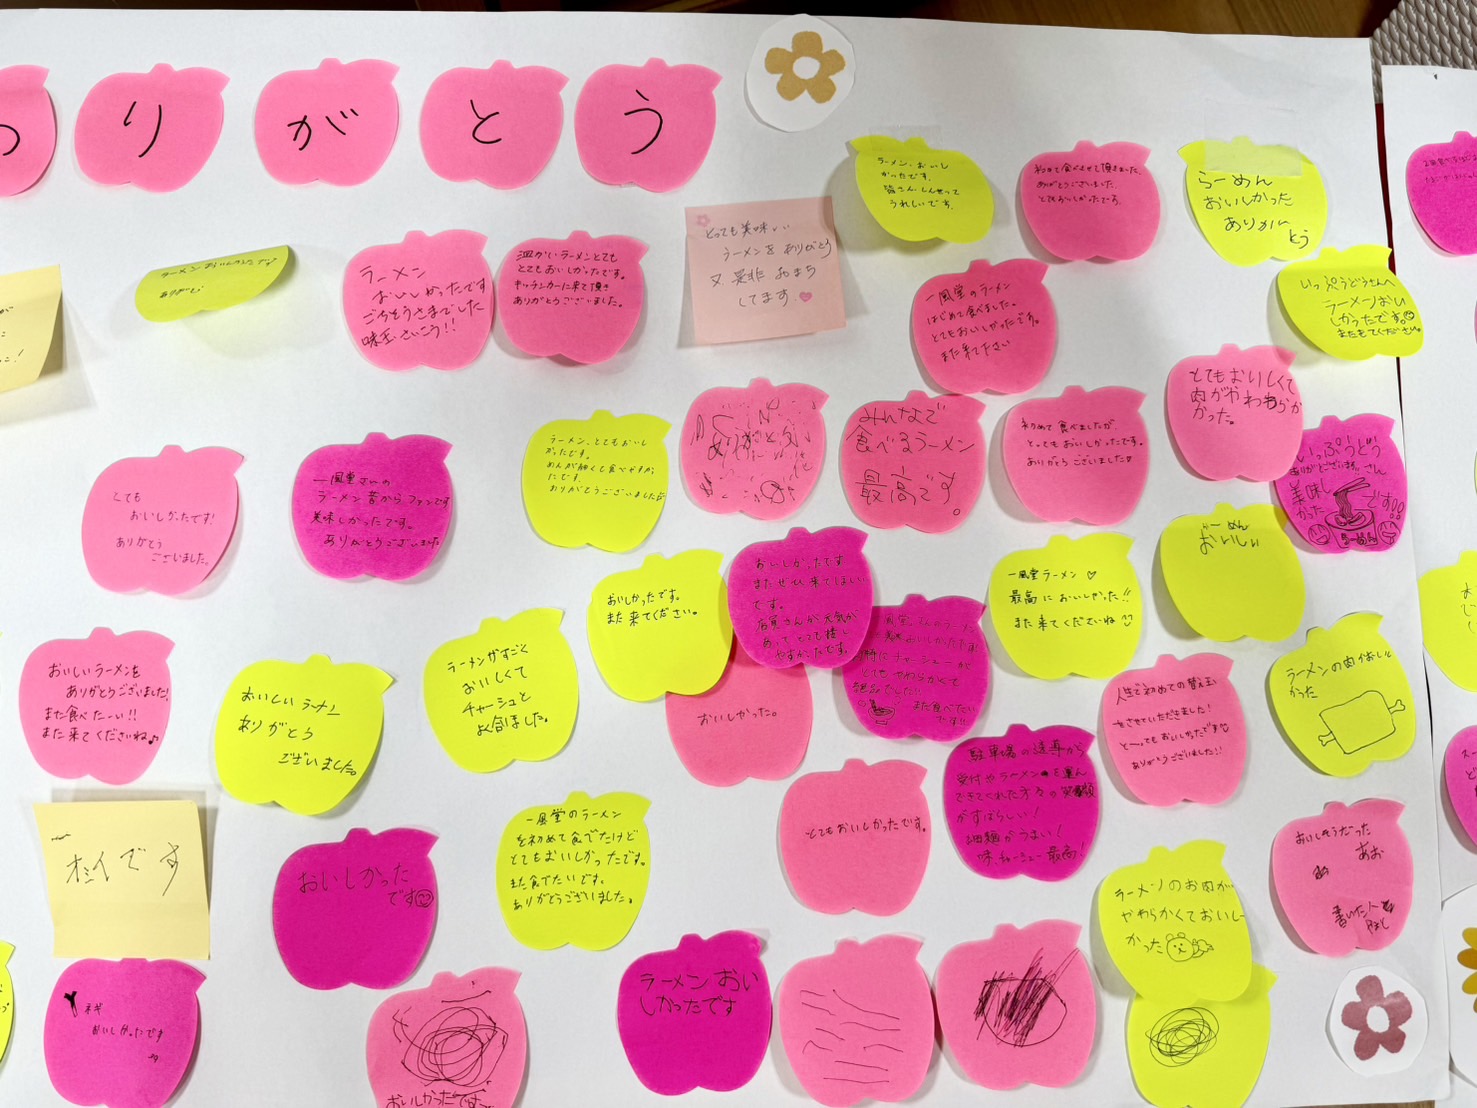 りがとう
ラーメン おいし
かったです。
皆さん しんせつで
うれしいです。
初めて食べさせて頂きました。
ありがとうございました。
とてもおいしかったです。
らーめん
おいしかった
ありがとう
とっても美味しい
ラーメンを ありがとう
又 是非 おまち
してます
ラーメン
おいしかったです
ごちそうさまでした
味玉 さいこう!!
温かいラーメンとても
とてもおいしかったです。
キッチンカーに来て頂き
ありがとうございました。
一風堂のラーメン
はじめて食べました。
とてもおいしかったです。
また来て下さい
いっぷうどうさんへ
ラーメンおい
しかったです。
またきてください。
とてもおいしくて
肉がやわらか
かった。
いっぷうどう
さん
美味し
かった
です!!
らーめん
とても
おいしかったです!
ありがとう
ございました。
一風堂さんの
ラーメン昔からファンです
美味しかったです。
ありがとうございました
ラーメン、とてもおいし
かったです。
めんが細くて食べやすかっ
たです。
ありがとうございました
みんなで
食べるラーメン
最高です。
初めて食べましたが、
とってもおいしかったです。
ありがとうございました
らーめん
おいしい
おいしかったです。
また来てください。
おいしかったです
またぜひ来てほしい
です。
店員さんが元気が
あってとても接し
やすかったです。
一風堂ラーメン♡
最高においしかった!!
また来てくださいね
おいしいラーメンを
ありがとうございました!
また食べたーい!!
また来てくださいね♪
おいしいラーメン
ありがとう
ございました。
ラーメンがすごく
おいしくて
チャーシュと
よく合いました。
おいしかった。
特にチャーシューが
とてもやわらかくて
また食べたい
です!!
人生で初めての替え玉
をさせていただきました!
と〜ってもおいしかったです
ありがとうございました!
ラーメンの肉がおいし
かった
駐車場の誘導から
受付やラーメンを運ん
できてくれた方々の笑顔
がすばらしい!
細麺がうまい!
味、チャーシュー最高!
オミイです
おいしかった
です
一風堂のラーメン
を初めて食べたけど
とてもおいしかったです。
また食べたいです。
ありがとうございました。
とてもおいしかったです。
ラーメンのお肉が
やわらかくておいし
かった
おいしそうだった
あお
書いた人
ネギ
おいしかったです
ラーメンおい
しかったです
おいしかったです